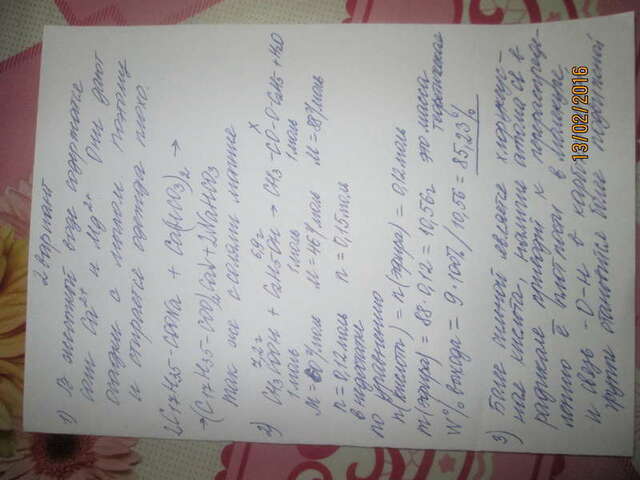 2 вариант
1) В жесткой воде содержатся
соли Ca²⁺ и Mg²⁺ Они дают
осадки с мылом Поэтому
и стирается одежда плохо.
2C17H35-COONa + Ca(HCO3)2 →
→(C17H35-COO)2Ca↓+2NaHCO3
так же с солями магния
2) 7,2г 6,9г x
CH3COOH + C2H5OH → CH3-CO-O-C2H5 + H2O
1моль 1моль 1моль
M=60г/моль M=46г/моль M=88г/моль
n=0,12моль n=0,15моль
в недостатке
по уравнению
n(кислоты) = n(эфира) = 0,12моль
m(эфира) = 88·0,12 = 10,56г это масса
теоретическая
W% выхода = 9·100%/10,56 = 85,23%
3) Более сильной является хлоруксус-
ная кислота, наличие атома Cl в
радикале приводит к перераспреде-
лению ē плотности в молекуле
и связь -O-H в карбоксильной
группе становится более полярной
13/02/2016